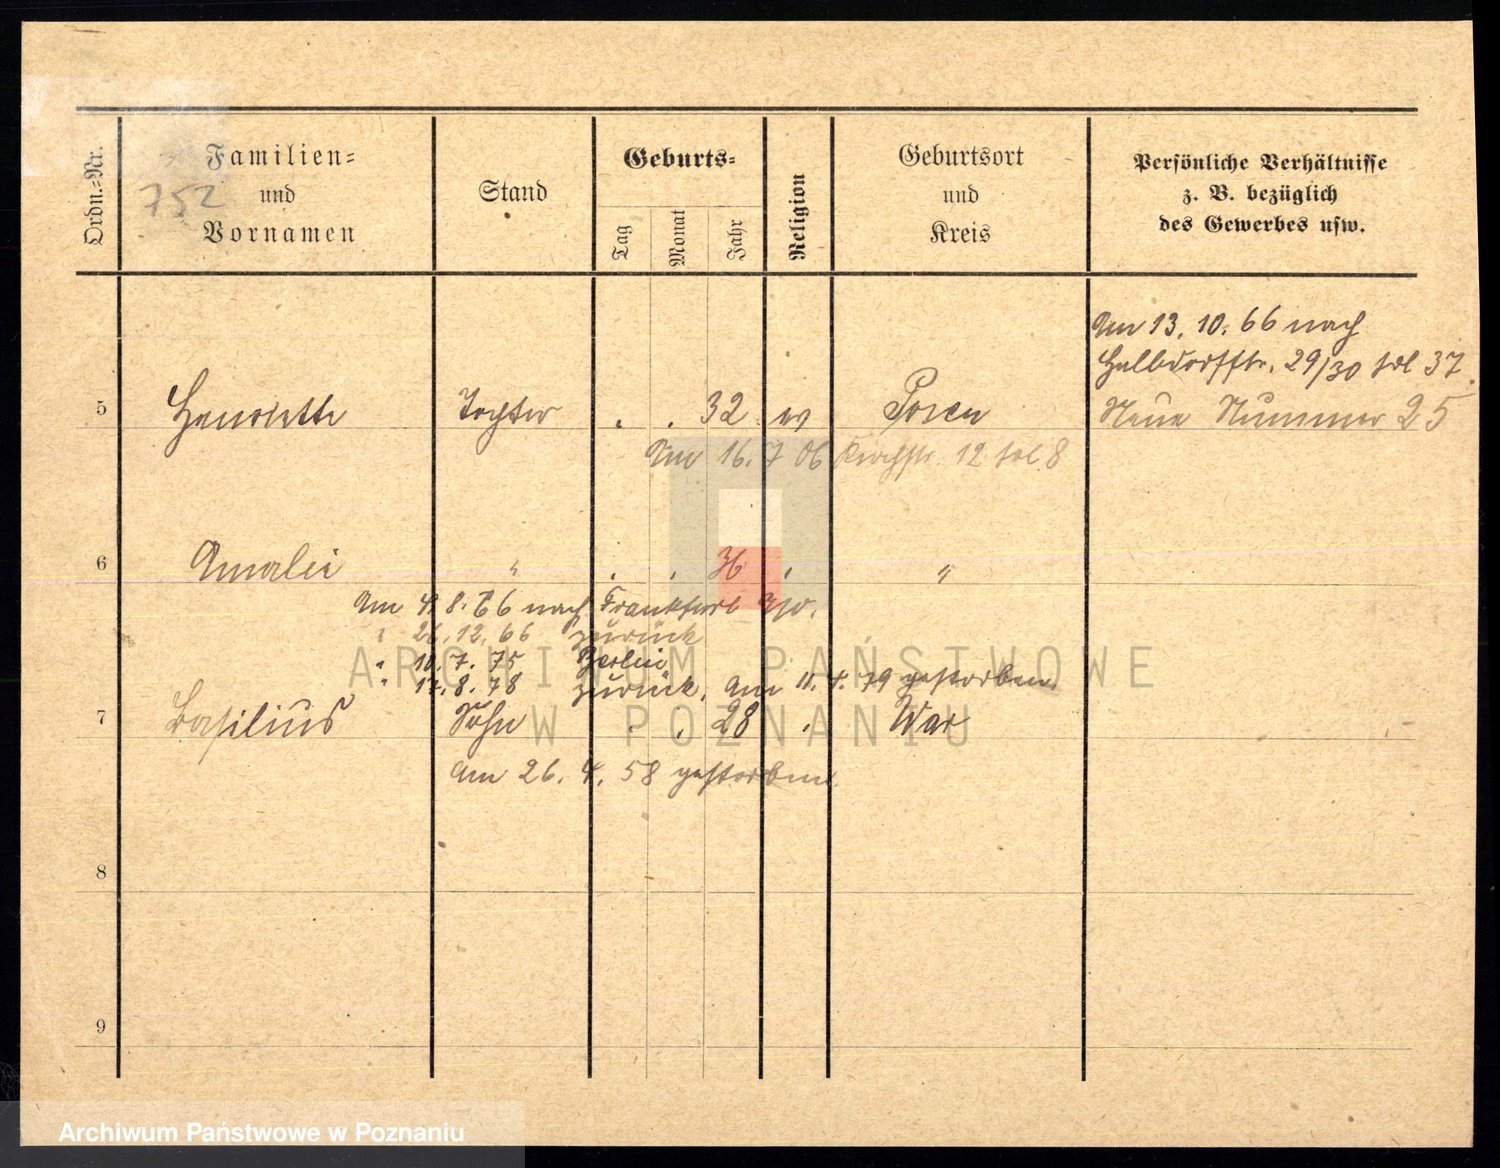 Ordn.=Nr.
Familien=
und
Vornamen
752
Stand
Geburts=
Tag
Monat
Jahr
Religion
Geburtsort
und
Kreis
Persönliche Verhältnisse
z. B. bezüglich
des Gewerbes usw.
Am 13. 10. 66 nach
Halbdorfstr. 29/30 fol 37.
5 Henriette Tochter . . 32 ev Posen Neue Nummer 25
Am 16. 7 06 12 fol. 8
6 Amalie " . . 36 . "
Am 4. 8. 66 nach Frankfurt a/O.
" 26. 12. 66 zurück
" 10. 7. 75 Berlin
" 17. 8. 78 zurück, am 11. 4. 79 gestorben.
7 Basilius Sohn . . 28 .
am 26. 4. 58 gestorben.
8
9
ARCHIWUM PAŃSTWOWE
W POZNANIU
Archiwum Państwowe w Poznaniu